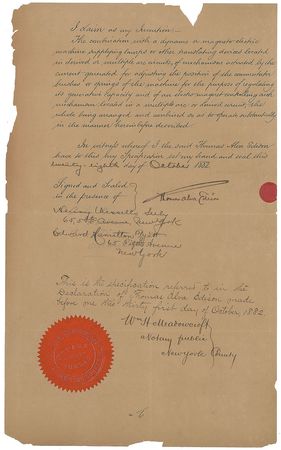 I claim as my Invention:-
The combination with a dynamo or magneto electric
machine supplying lamps or other translating devices located
in derived or multiple arc circuits, of mechanism actuated by the
current generated for adjusting the position of the commutator
brushes or springs of the machine for the purpose of regulating
its generative capacity and of an electro-magnet controlling such
mechanism located in a multiple arc or derived circuit, the
whole being arranged and combined so as to operate substantially
in the manner hereinbefore described.
In witness whereof I the said Thomas Alva Edison
have to this my Specification set my hand and seal this
twenty-eighth day of October 1882.
Signed and Sealed
in the presence of
Thomas Alva Edison
Seely
65, 5th Avenue New York
Edward Hamilton Pyatt
65 Fifth Avenue
New York
This is the specification referred to in the
Declaration of Thomas Alva Edison made
before me this thirty first day of October, 1882
Wm H. Meadowcroft
Notary public
New York County